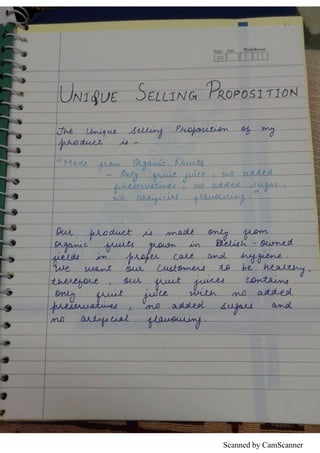 Page Date Rainbow
UNIQUE SELLING PROPOSITION
The Unique Selling Proposition of my
product is -
"Made from Organic Fruits
- Only fruit juice, no added
preservatives, no added sugar,
no artificial flavouring."
Our product is made only from
organic fruits grown in Delish-owned
fields in proper care and hygiene.
We want our customers to be healthy,
therefore, our fruit juices contains
only fruit juice with no added
preservatives, no added sugars and
no artificial flavouring.
Scanned by CamScanner